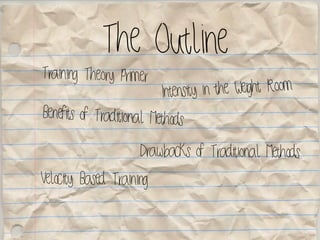 The Outline
Training Theory Primer
Intensity in the Weight Room
Benefits of Traditional Methods
Drawbacks of Traditional Methods
Velocity Based Training